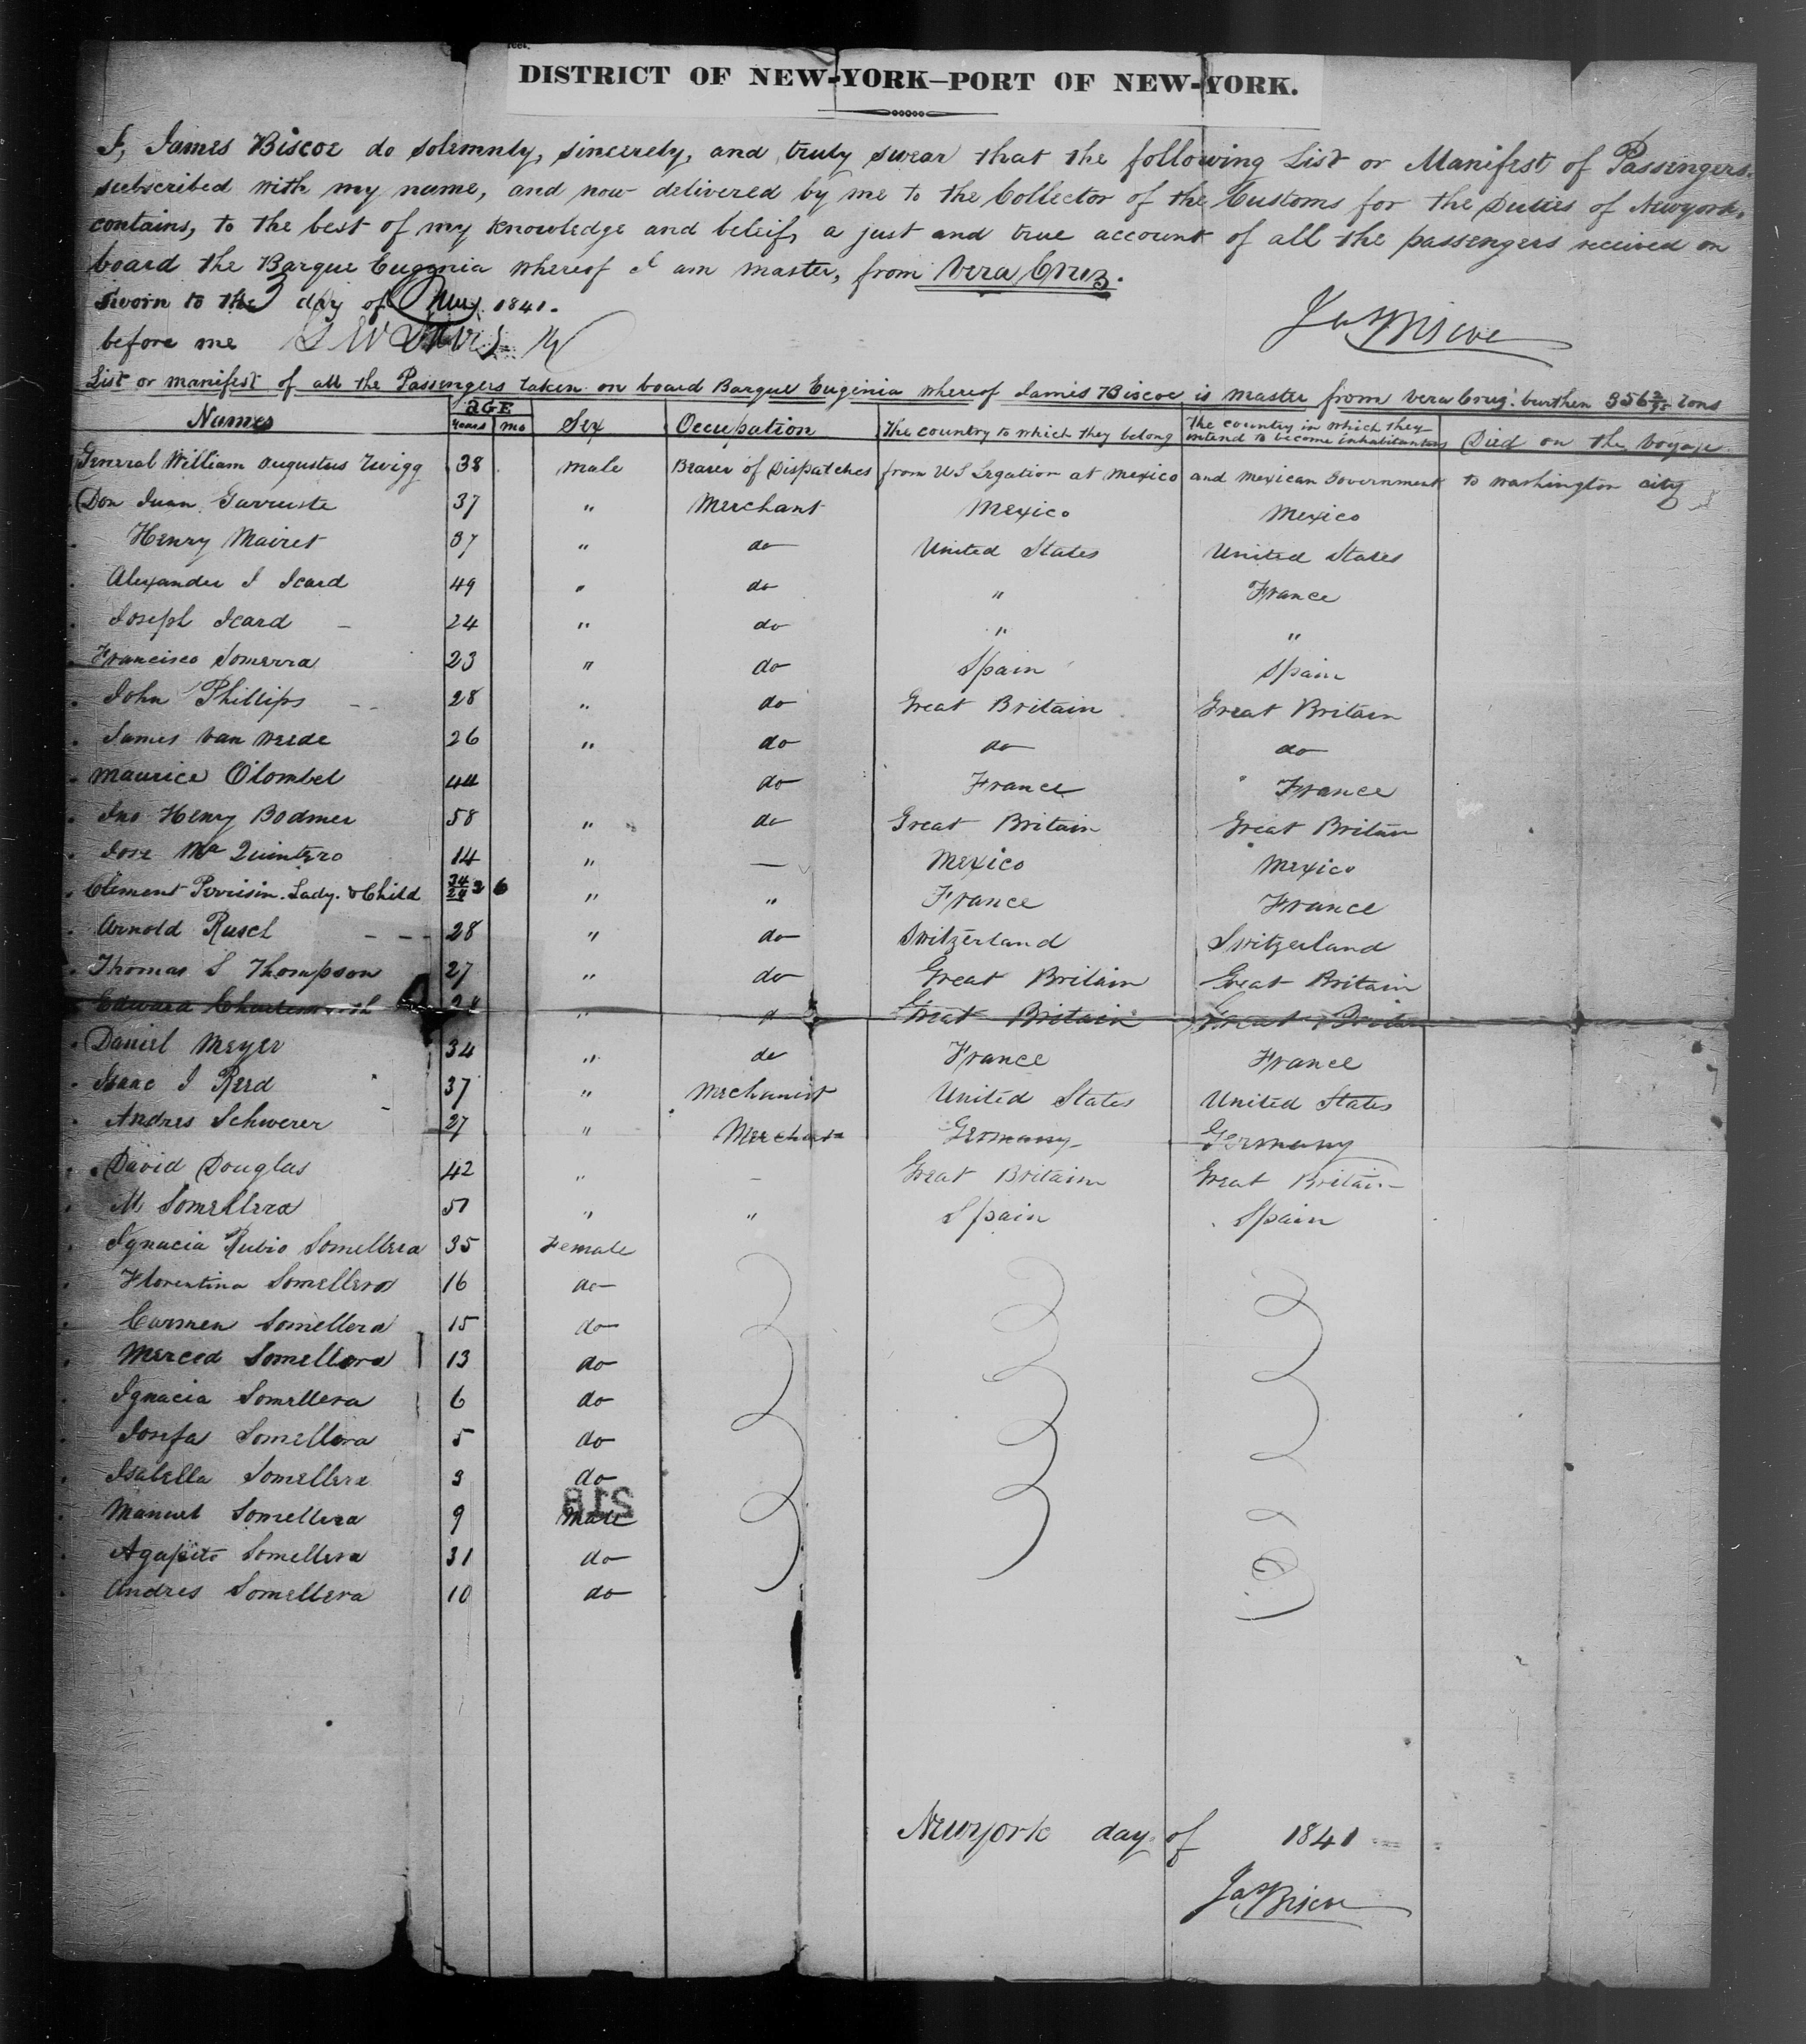 DISTRICT OF NEW-YORK—PORT OF NEW-YORK.
I, James Biscoe do solemnly, sincerely, and truly swear that the following List or Manifest of Passengers.
subscribed with my name, and now delivered by me to the Collector of the Customs for the Duties of Newyork,
contains, to the best of my knowledge and beleif, a just and true account of all the passengers received on
board the Barque Eugenia whereof I am master, from Vera Cruz.
Sworn to the 3 day of 1841.
before me
Jas Biscoe
List or manifest of all the Passengers taken on board Barque Eugenia whereof James Biscoe is master from Vera Cruz. burthen 356 tons
Names AGE Years mo Sex Occupation The country to which they belong The country in which they intend to become inhabitants Died on the Voyage
General William Augustus Twigg 38 male Bearer of Dispatches from US Legation at Mexico and Mexican Government to Washington city
Don Juan 37 " Merchant Mexico Mexico
Henry Mairet 37 " do United States United States
Alexander I Icard 49 " do " France
Joseph Icard 24 " do " "
Francisco Somerra 23 " do Spain Spain
John Phillips 28 " do Great Britain Great Britain
James Van 26 " do do do
Maurice Olombel 44 do France France
Jno Henry Bodmer 58 " do Great Britain Great Britain
Jose Ma Quintero 14 " — Mexico Mexico
Clement Lady. & Child 34 24 3 6 " " France France
Arnold Rusch 28 " do Switzerland Switzerland
Thomas S Thompson 27 " do Great Britain Great Britain
Edward " " Great Britain Great Britain
Daniel Meyer 34 " do France France
Isaac I Reed 37 " Mechanist United States United States
Andres Schwerer 27 " Merchant Germany Germany
David Douglas 42 " – Great Britain Great Britain
M Somellera 51 " " Spain Spain
Ignacia Rubio Somellera 35 Female
Florentina Somellera 16 do
Carmen Somellera 15 do
Merced Somellera 13 do
Ignacia Somellera 6 do
Josefa Somellera 5 do
Isabella Somellera 3 do
Manuel Somellera 9 Male
Agapito Somellera 31 do
Andres Somellera 10 do
Newyork day of 1841
Jas Biscoe